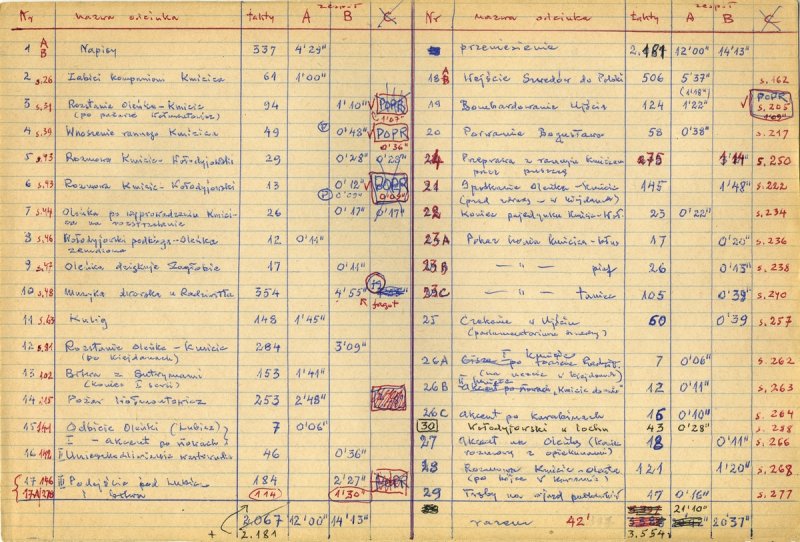 Nr nazwa odcinka takty A zespół B C
1 A B Napisy 337 4'29"
2 s.26 Zabici kompanioni Kmicica 61 1'00"
3 s.31 Rozstanie Oleńka - Kmicic 94 1'10" POPR
(po pożarze Wołmontowicz) 1'07"
4 s.39 Wnoszenie rannego Kmicica 49 P 0'48" POPR
0'36"
5 s.43 Rozmowa Kmicic - Wołodyjowski 29 0'28" 0'28"
6 s.43 Rozmowa Kmicic - Wołodyjowski 13 0'12" POPR
P 0'09" 0'09"
7 s.44 Oleńka po wyprowadzeniu Kmici-
ca na rozstrzelanie 26 0'17" 0'17"
8 s.46 Wołodyjowski podbiega - Oleńka
zemdlona 12 0'11"
9 s.47 Oleńka dziękuje Zagłobie 17 0'11"
10 s.48 Muzyka dworska u Radziwiłła 354 4'55"
fagot
11 s.63 Kulig 148 1'45"
12 s.81 Rozstanie Oleńka - Kmicic 284 3'09"
(po Kiejdanach)
13 Bitwa z Butrymami 153 1'41"
(koniec I serii)
14 Pożar Wołmontowicz 253 2'48"
15 Odbicie Oleńki (Lubicz) 7 0'06"
I - akcent po
16 II 46 0'36"
17 146 III Podejście pod Lubicz 184 2'27" POPR
17A i bitwa 114 1'30"
2067 12'00" 14'13"
+ 2.181
Nr nazwa odcinka takty A zespół B C
przeniesienie 2.181 12'00" 14'13"
18 A B Wejście Szwedów do Polski 506 5'37" s.162
(1'18")
19 Bombardowanie Ujścia 124 1'22" POPR
s.205
1'09"
20 Porwanie Bogusława 58 0'38" s.217
Przeprawa z rannym Kmicicem 75 1'14" s.250
przez puszczę
21 Spotkanie Oleńka - Kmicic 145 1'48" s.222
(przed - w Kiejdanach)
22 Koniec pojedynku Kmicic - Woł. 23 0'22" s.234
23A Pokaz konia Kmicica - kłus 17 0'20" s.236
23B — " — piaf 26 0'13" s.238
23C — " — taniec 105 0'39" s.240
25 Czekanie w Ujściu 60 0'39 s.257
(parlamentariusze szwedzcy)
26A I Kmicic 7 0'06" s.262
(na uczcie w Kiejdanach)
26B 12 0'11" s.263
26C Akcent po karabinach 16 0'10" s.264
30 Wołodyjowski w lochu 43 0'28" s.288
27 Akcent na Oleńkę (Kmic. 18 0'11" s.266
rozmowy z opiekunami)
28 Rozmowa Kmicic - Oleńka 121 1'20" s.268
29 Trąby na odjazd 17 0'16" s.277
21'10"
razem 42' 20'37"
3.554